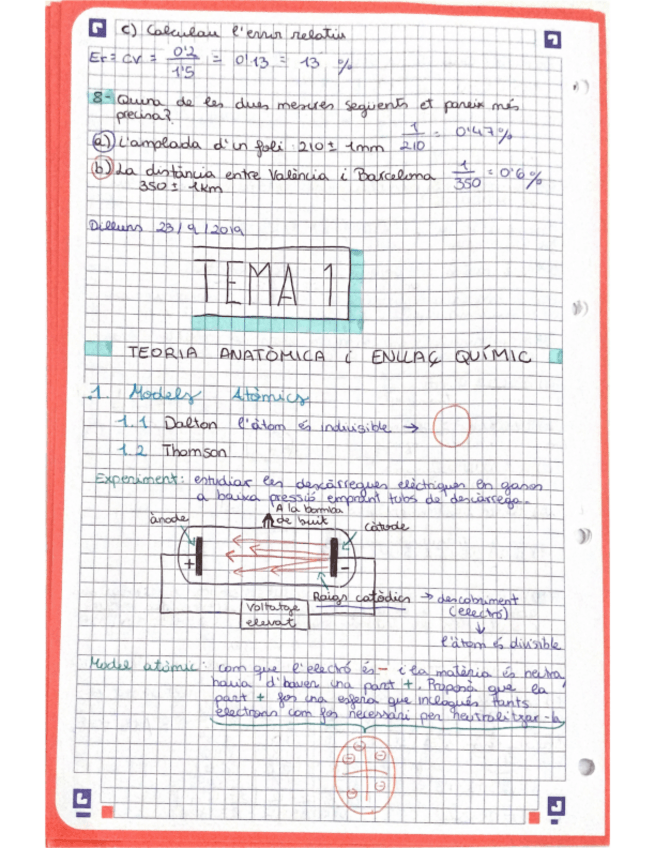 c) Calculau l'error relatiu
Er = CV = 0'2 / 1'5 = 0'13 = 13 %
8- Quina de les dues mesures següents et pareix més
precisa?
a) L'amplada d'un foli 210 ± 1mm 1/210 = 0'47%
b) La distància entre València i Barcelona 1/350 = 0'6%
350 ± 1km
Dilluns 23/9/2019
TEMA 1
TEORIA ANATÒMICA i ENLLAÇ QUÍMIC
1. Models Atòmics
1.1 Dalton l'àtom és indivisible →
1.2 Thomson
Experiment: estudiar les descàrregues elèctriques en gasos
a baixa pressió emprant tubs de descàrrega.
A la bomba
de buit
ànode
càtode
+
-
Raigs catòdics → descobriment
(electró)
Voltatge
elevat
↓
l'àtom és divisible
Model atòmic: com que l'electró és - i la matèria és neutra
havia d'haver una part +. Proposà que la
part + fos una esfera que inclogués tants
electrons com fos necessari per neutralitzar-la